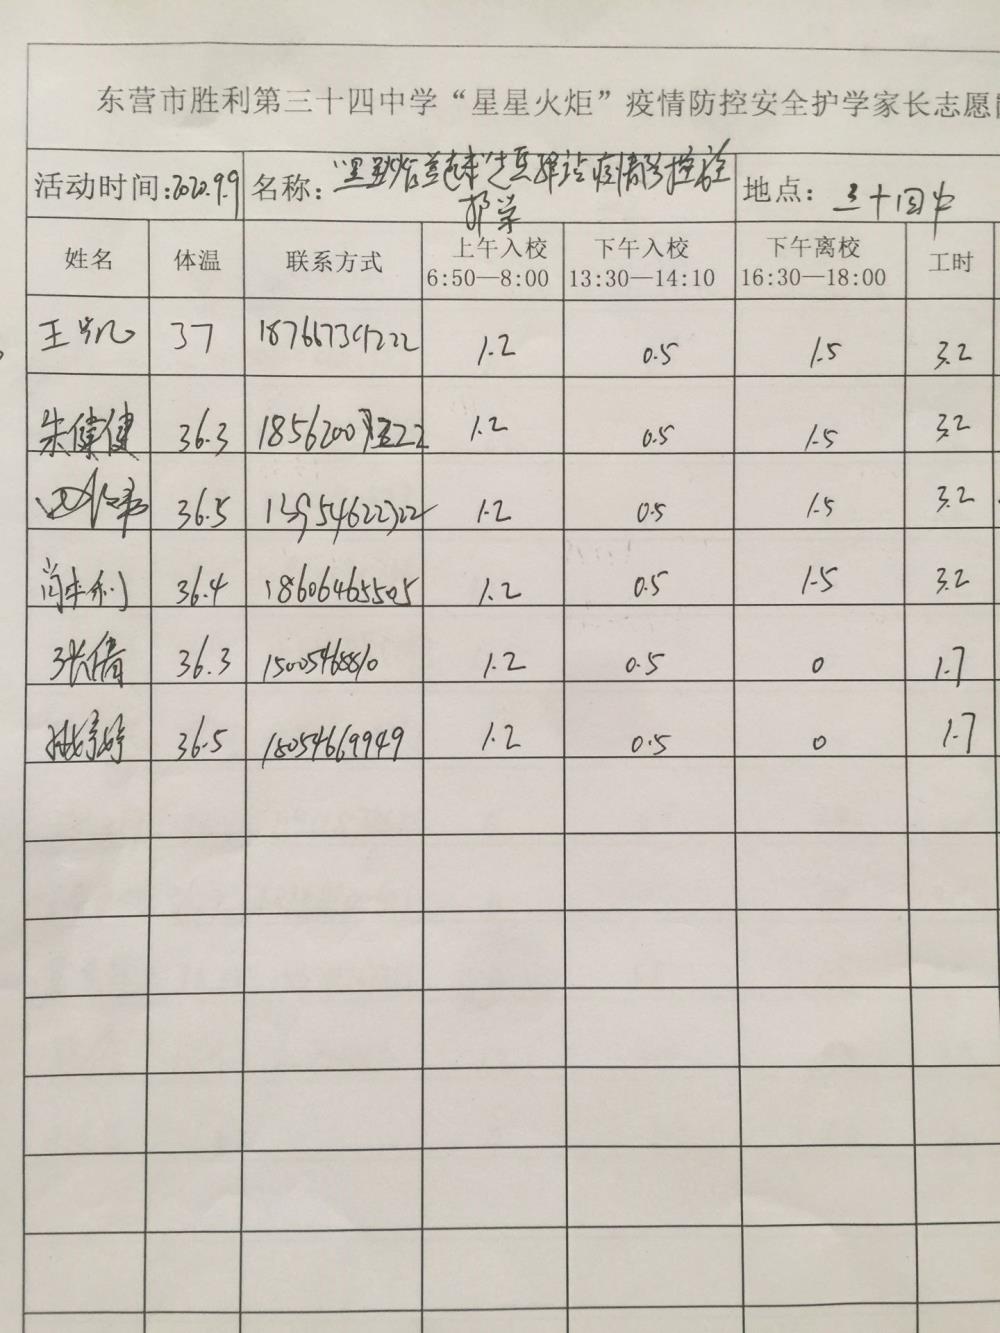 东营市胜利第三十四中学“星星火炬”疫情防控安全护学家长志愿
活动时间:2020.9.9 名称: 疫情防控 地点: 三十四中
护学
姓名 体温 联系方式 上午入校 6:50—8:00 下午入校 13:30—14:10 下午离校 16:30—18:00 工时
王凯 37 1.2 0.5 1.5 3.2
朱健健 36.3 1.2 0.5 1.5 3.2
36.5 13954622722 1.2 0.5 1.5 3.2
36.4 18606465505 1.2 0.5 1.5 3.2
张倩 36.3 15005468810 1.2 0.5 0 1.7
36.5 18054669949 1.2 0.5 0 1.7